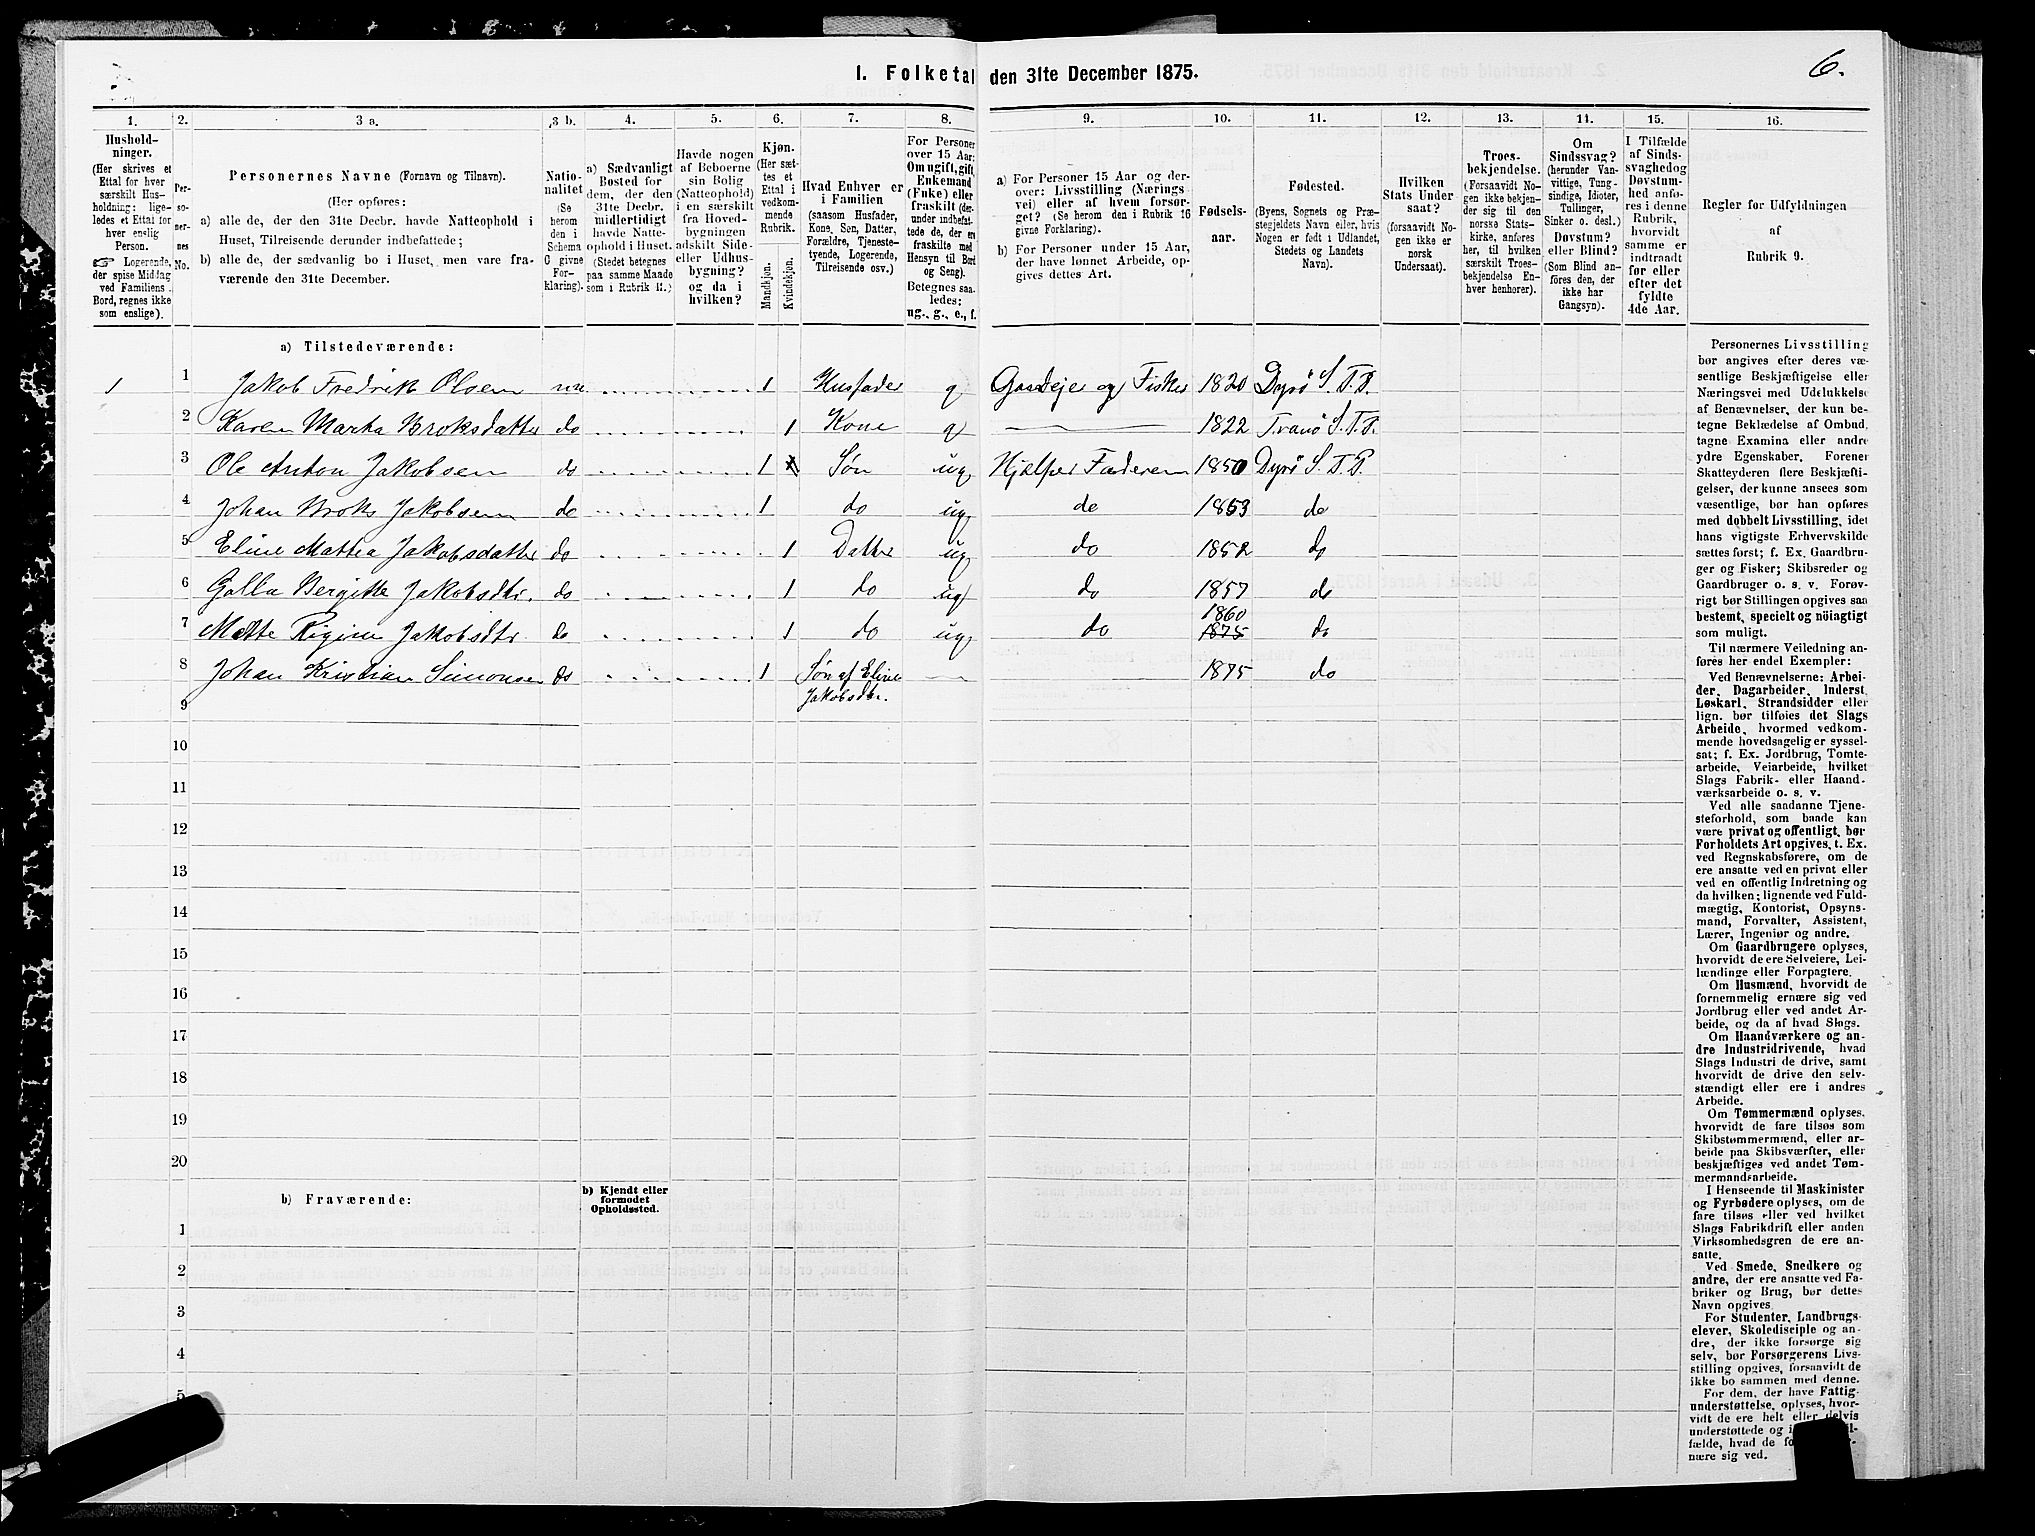 6.
I. Folketal den 31te December 1875.
1. 2. 3 a. 3 b. 4. 5. 6. 7. 8. 9. 10. 11. 12. 13. 14. 15. 16.
Husholdninger.
(Her skrives et
Ettal for hver
særskilt Husholdning;
ligeledes et Ettal for
hver enslig
Person.
☞ Logerende,
der spise Middag
ved Familiens
Bord, regnes ikke
som enslige).
Personernes
No.
Personernes Navne (Fornavn og Tilnavn).
(Her opføres:
a) alle de, der den 31te Decbr. havde Natteophold i
Huset, Tilreisende derunder indbefattede;
b) alle de, der sædvanlig bo i Huset, men vare fraværende
den 31te December.
Nationalitet
(Se
herom
den i
Schema
C givne
Forklaring).
a) Sædvanligt
Bosted for
dem, der den
31te Decbr.
midlertidigt
havde Natteophold
i Huset.
(Stedet betegnes
paa samme Maade
som i Rubrik 11.)
Havde nogen
af Beboerne
sin Bolig
(Natteophold)
i en særskilt
fra Hovedbygningen
adskilt Sideeller
Udhusbygning?
og da i
hvilken?
Kjøn.
(Her sættes
et
Ettal i
vedkommende
Rubrik.
Mandkjøn.
Kvindekjøn.
Hvad Enhver er
i Familien
(saasom Husfader,
Kone, Søn, Datter,
Forældre, Tjenestetyende,
Logerende,
Tilreisende osv.)
For Personer
over 15 Aar:
Om ugift, gift,
Enkemand
(Enke) eller
fraskilt (derunder
indbefattede
de, der ere
fraskilte med
Hensyn til Bord
og Seng).
Betegnes saaledes:
ug., g., e., f.
a) For Personer 15 Aar og derover:
Livsstilling (Næringsvei)
eller af hvem forsørget?
(Se herom den i Rubrik 16
givne Forklaring).
b) For Personer under 15 Aar,
der have lønnet Arbeide, opgives
dettes Art.
Fødselsaar.
Fødested.
(Byens, Sognets og Præstegjeldets
Navn eller, hvis
Nogen er født i Udlandet,
Stedets og Landets
Navn).
Hvilken
Stats Undersaat?
(forsaavidt Nogen
ikke er
norsk
Undersaat).
Troesbekjendelse.
(Forsaavidt Nogen
ikke bekjender
sig til den
norske Statskirke,
anføres
her, til hvilken
særskilt Troesbekjendelse
Enhver
henhører).
Om
Sindssvag?
(herunder Vanvittige,
Tungsindige,
Idioter,
Tullinger,
Sinker o. desl.)
Døvstum?
eller Blind?
(Som Blind anføres
den, der
ikke har
Gangsyn).
I Tilfælde
af Sindssvaghed
og
Døvstumhed
anføres
i denne
Rubrik,
hvorvidt
samme er
indtraadt
før eller
efter det
fyldte
4de Aar.
Regler for Udfyldningen
af
Rubrik 9.
a) Tilstedeværende:
1 1 Jakob Fredrik Olsen nn 1 Husfader g Gaardejer og Fisker 1820 Dyrø S. T. P.
2 Karen Marta Kroksdatter do 1 Kone g 1822 Tranø S. T. P.
3 Ole Anton Jakobsen do 1 Søn ug Hjælper Faderen 1850 Dyrø S. T. P.
4 Johan Kroks Jakobsen do 1 do ug do 1853 do
5 Eline Mattea Jakobsdatter do 1 Datter ug do 1852 do
6 Golla Bergitte Jakobsdtr. do 1 do ug do 1857 do
7 Mette Rigine Jakobsdtr do 1 do ug do 1860 1875 do
8 Johan Kristian Simonsen do 1 Søn af Eline Jakobsdtr. 1875 do
9
10
11
12
13
14
15
16
17
18
19
20
b) Fraværende:
b) Kjendt eller
formodet
Opholdssted.
1
2
3
4
5
Personernes Livsstilling
bør angives efter deres væsentlige
Beskjæftigelse eller
Næringsvei med Udelukkelse
af Benævnelser, der kun betegne
Beklædelse af Ombud,
tagne Examina eller andre
ydre Egenskaber. Forener
Skatteyderen flere Beskjæftigelser,
der kunne ansees som
væsentlige, bør han opføres
med dobbelt Livsstilling, idet
hans vigtigste Erhvervskilde
sættes først; f. Ex. Gaardbruger
og Fisker; Skibsreder og
Gaardbruger o. s. v. Forøvrigt
bør Stillingen opgives saa
bestemt, specielt og nöiagtigt
som muligt.
Til nærmere Veiledning anføres
her endel Exempler:
Ved Benævnelserne: Arbeider,
Dagarbeider, Inderst,
Løskarl, Strandsidder eller
lign. bør tilføies det Slags
Arbeide, hvormed vedkommende
hovedsagelig er sysselsat;
f. Ex. Jordbrug, Tomtearbeide,
Veiarbeide, hvilket
Slags Fabrik- eller Haandværksarbeide
o. s. v.
Ved alle saadanne Tjenesteforhold,
som baade kan
være privat og offentligt, bør
Forholdets Art opgives, t. Ex.
ved Regnskabsførere, om de
ere ansatte ved en privat eller
ved en offentlig Indretning og
da hvilken; lignende ved Fuldmægtig,
Kontorist, Opsynsmand,
Forvalter, Assistent,
Lærer, Ingeniør og andre.
Om Gaardbrugere oplyses,
hvorvidt de ere Selveiere, Leilændinge
eller Forpagtere.
Om Husmænd, hvorvidt de
fornemmelig ernære sig ved
Jordbrug eller ved andet Arbeide,
og da af hvad Slags.
Om Haandværkere og andre
Industridrivende, hvad
Slags Industri de drive, samt
hvorvidt de drive den selvstændigt
eller ere i andres
Arbeide.
Om Tømmermænd oplyses,
hvorvidt de fare tilsøs som
Skibstømmermænd, eller arbeide
paa Skibsværfter, eller
beskjæftiges ved andet Tømmermandsarbeide.
I Henseende til Maskinister
og Fyrbødere oplyses, om de
fare tilsøs eller ved hvilket
Slags Fabrikdrift eller anden
Virksomhedsgren de ere ansatte.
Ved Smede, Snedkere og
andre, der ere ansatte ved Fabriker
og Brug, bør dettes
Navn opgives.
For Studenter, Landbrugselever,
Skoledisciple og andre,
der ikke forsørge sig
selv, bør Forsørgerens Livsstilling
opgives, forsaavidt de
ikke bo sammen med denne.
For dem, der have Fattigunderstøttelse,
oplyses, hvorvidt
de ere helt eller delvis
understøttede og i
fælde, hvad de
nære sig ved.